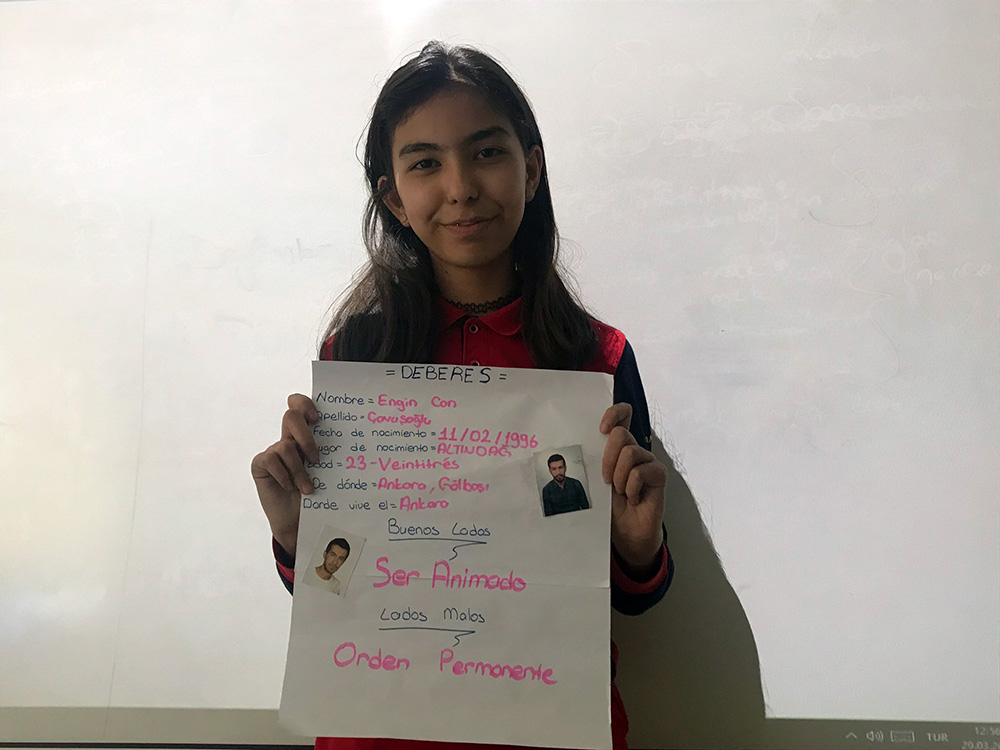 = DEBERES =
Nombre = Engin Can
Apellido = Çavuşoğlu
Fecha de nacimiento = 11/02/1996
Lugar de nacimiento = ALTINDAĞ
Edad = 23 - Veintitrés
De dónde = Ankara, Gölbaşı
Donde vive el = Ankara
Buenos Lados
Ser Animado
Lados Malos
Orden Permanente
TUR